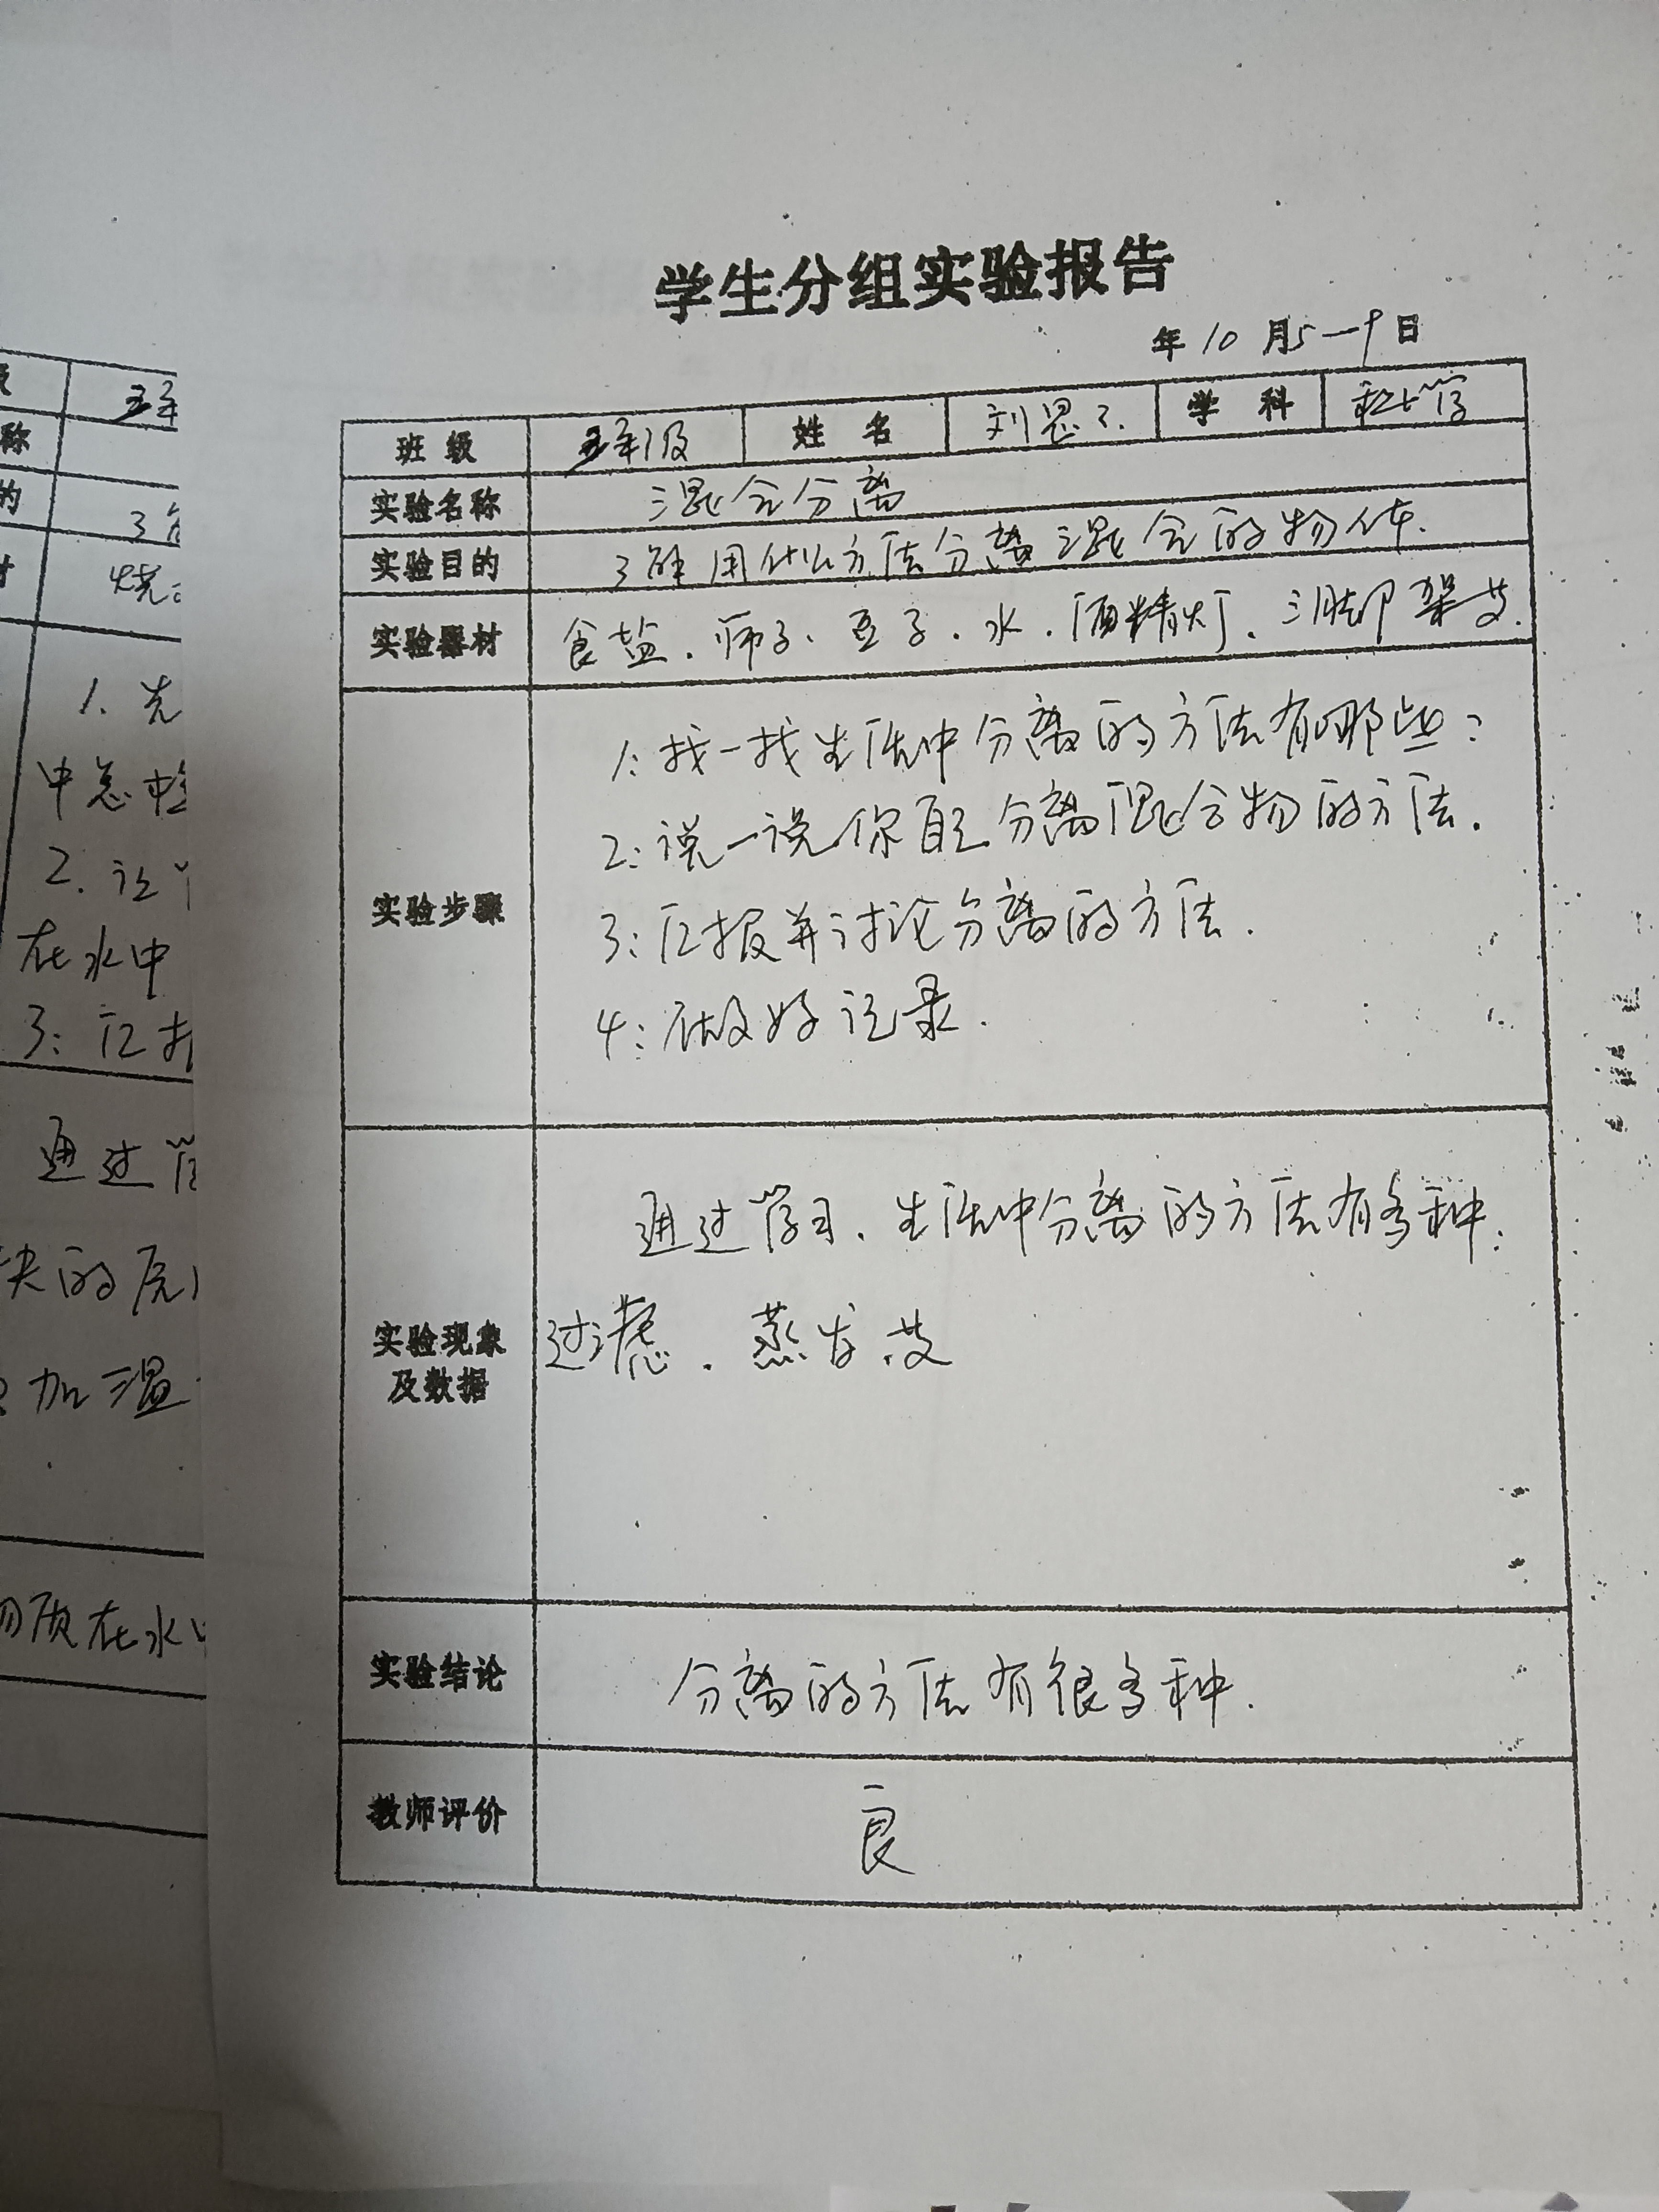 学生分组实验报告
年 10 月 5—9 日
班级 五年级 姓名 刘思 学科 科学
实验名称 混合分离
实验目的 了解用什么方法分离混合的物体.
实验器材 食盐.筛子、豆子.水.酒精灯.三脚架等.
实验步骤
1:找一找生活中分离的方法有哪些?
2:说一说你自己分离混合物的方法.
3:汇报并讨论分离的方法.
4:做好记录.
实验现象
及数据
通过学习.生活中分离的方法有多种:
过滤.蒸发.等
实验结论 分离的方法有很多种.
教师评价 良
五年
称
的 了
烧
1.先
中总
2.让
在水中
3:汇
通过学
块的
加温
物质在水